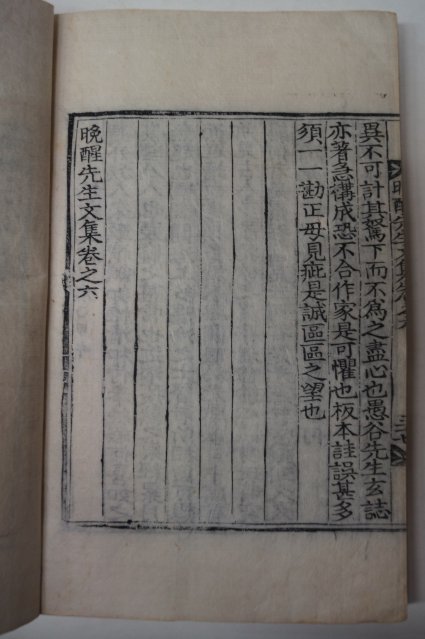 異不可計其駑下而不爲之盡心也愚谷先生玄誌
亦著急搆成恐不合作家是可懼也板本註誤甚多
須一一勘正毋見疵是誠區區之望也
晩醒先生文集卷之六